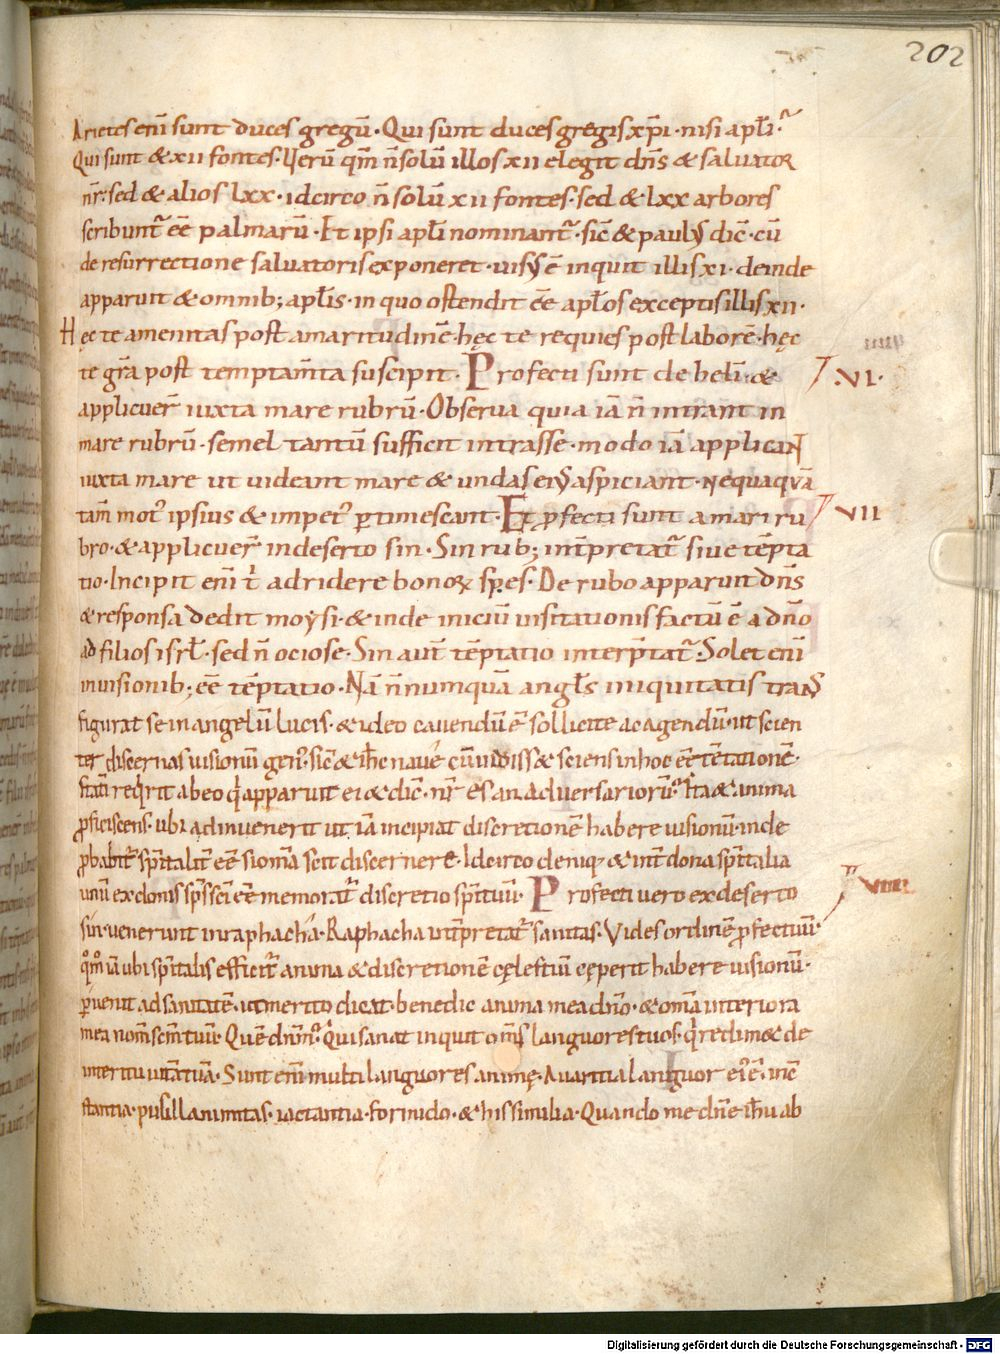 202
Arietes eni sunt duces gregū. Qui sunt duces gregis xp̄i. nisi apłi.
Qui sunt & xii fontes. Verū qm̄ n̄ solū illos xii elegit dn̄s & saluator
nr̄. sed & alios lxx. idcirco n̄ solū xii fontes. sed & lxx arbores
scribunt̄ eē palmarū. Et ipsi apłi nominant̄. sic̄ & paulus dic̄. cū
de resurrectione saluatoris exponeret. uisus ē inquit illis xi. deinde
apparuit & omnib; apłis. in quo ostendit eē apłos exceptis illis xii.
Hęc te amenitas post amaritudinē. hęc te requies post laborē. hęc
te gr̄a post temptam̄ta suscipit. Profecti sunt de helī. &
VI.
applicuer̄ iuxta mare rubrū. Obserua quia iā n̄ intrant in
mare rubrū. semel tantū sufficit intrasse. modo iā applicant
iuxta mare ut uideant mare & undas eius aspiciant. nequaquā
tam̄ mot' ipsius & impet' ptimescant. Et pfecti sunt a mari ru
VII
bro. & applicuer̄ in deserto sin. Sin rub; int̄pretat̄ siue tēpta
tio. Incipit eni t̄ adridere bonoꝝ spes. De rubo apparuit dn̄s
& responsa dedit moysi. & inde iniciū uisitationis factū ē a dn̄o
ad filios isrł. sed n̄ ociose. Sin aut̄ tēptatio interp̄tat̄. Solet eni
in uisionib; eē tēptatio. Nā n̄numquā angłs iniquitatis trans
figurat se in angelū lucis. & ideo cauendū ē sollicite ac agendū. ut scien
ter discernas uisionū gen'. sic̄ & ih̄c naue cū uidiss& sciens in hoc eē tēptationē.
statī reqrit ab eo q apparuit ei & dic̄. nr̄ es an aduersariorū. Ita & anima
pficiscens. ubi ad inuenerit ut iā incipiat discretionē habere uisionū. inde
pbabit̄ spīitalit̄ eē si om̄a scit discernere. Idcirco deniq; & int̄ dona spīitalia
unū ex donis sp̄s sc̄i eē memorat̄ discretio spīituū. Profecti uero ex deserto
VIIII
sin. uenerunt in raphacha. Raphacha int̄pretat̄ sanitas. Vides ordinē pfectuū.
qm̄o iā ubi spīitalis efficit̄ anima & discretionē cęlestiū cęperit habere uisionū.
puenit ad sanitatē. ut merito dicat. benedic anima mea dn̄o. & om̄a interiora
mea nom̄ scm̄ tuū. Quē dnm̄. Qui sanat inquit om̄s languores tuos. q redim& de
interitu uitā tuā. Sunt eni multi languores animę. Auaritia languor ei' ē. inc̄
stantia. pusillanimitas. iactantia. formido. & his similia. Quando me dn̄e ih̄u ab
Digitalisierung gefördert durch die Deutsche Forschungsgemeinschaft - DFG